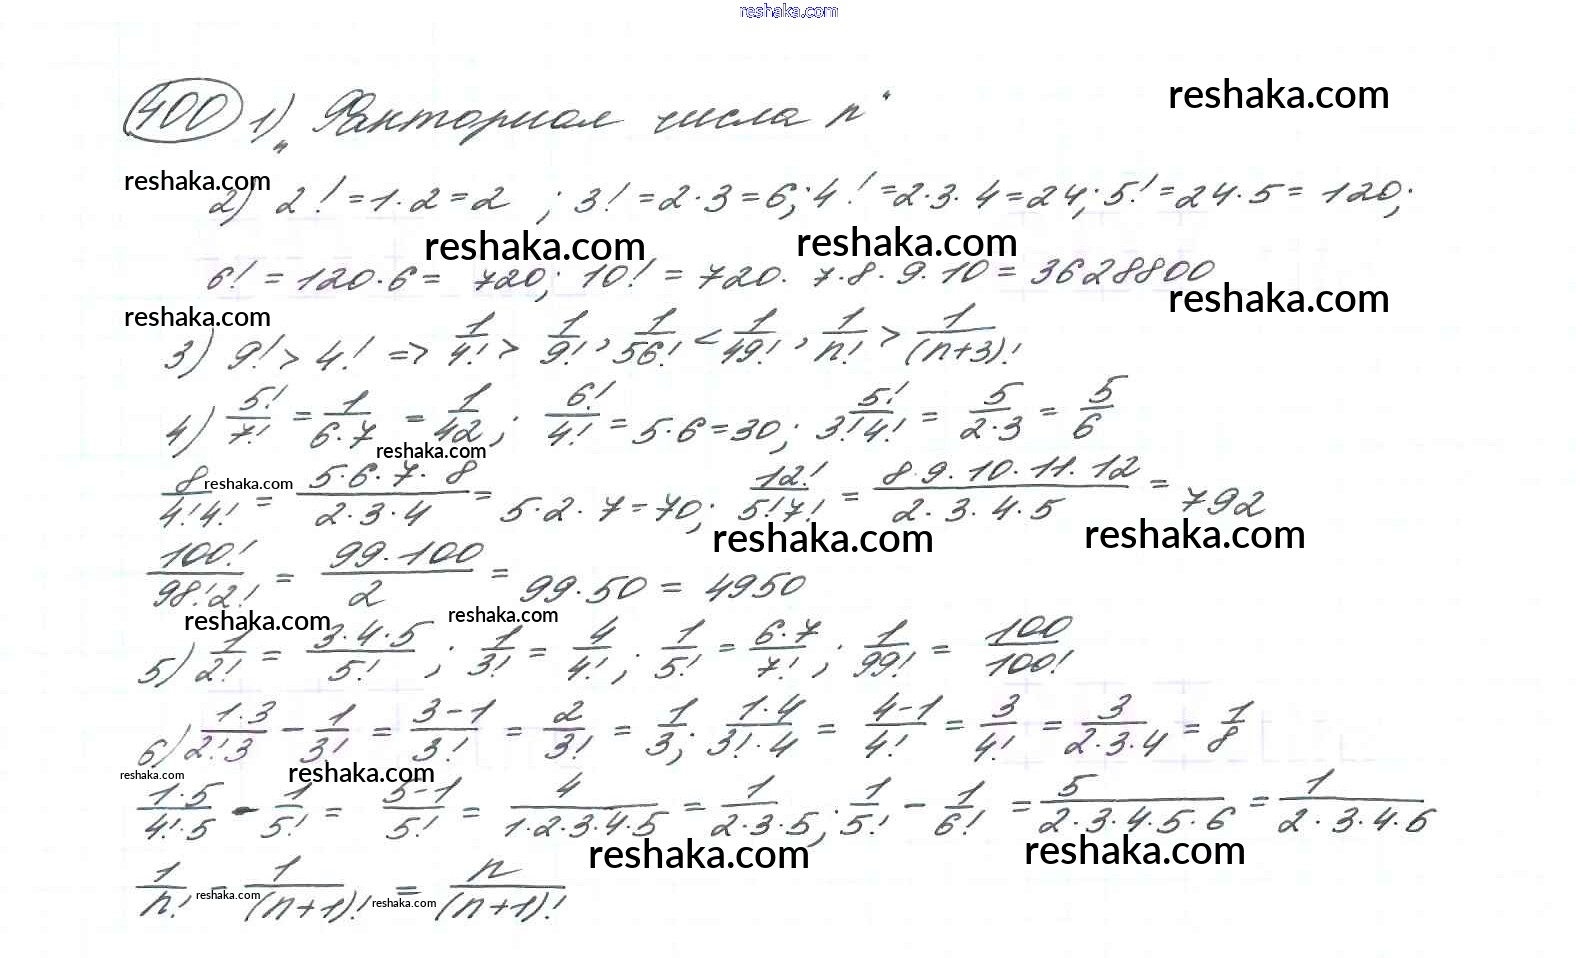 reshaka.com
400 1) „Факториал числа n“ reshaka.com
reshaka.com
2) 2! = 1·2 = 2 ; 3! = 2·3 = 6; 4! = 2·3·4 = 24; 5! = 24·5 = 120;
reshaka.com reshaka.com
6! = 120·6 = 720; 10! = 720·7·8·9·10 = 3628800
reshaka.com
reshaka.com
3) 9! > 4! => 1/4! > 1/9!, 1/56! < 1/49!, 1/n! > 1/(n+3)!
4) 5!/7! = 1/(6·7) = 1/42; 6!/4! = 5·6 = 30; 5!/(3!4!) = 5/(2·3) = 5/6
reshaka.com
8/(4!4!) = (5·6·7·8)/(2·3·4) = 5·2·7 = 70; 12!/(5!7!) = (8·9·10·11·12)/(2·3·4·5) = 792
reshaka.com
reshaka.com reshaka.com
100!/(98!2!) = (99·100)/2 = 99·50 = 4950
reshaka.com reshaka.com
5) 1/2! = (3·4·5)/5! ; 1/3! = 4/4! ; 1/5! = (6·7)/7! ; 1/99! = 100/100!
6) (1·3)/(2!·3) - 1/3! = (3-1)/3! = 2/3! = 1/3; (1·4)/(3!·4) = (4-1)/4! = 3/4! = 3/(2·3·4) = 1/8
reshaka.com reshaka.com
(1·5)/(4!·5) - 1/5! = (5-1)/5! = 4/(1·2·3·4·5) = 1/(2·3·5); 1/5! - 1/6! = 5/(2·3·4·5·6) = 1/(2·3·4·6)
reshaka.com reshaka.com
1/n! - 1/(n+1)! = n/(n+1)!
reshaka.com reshaka.com